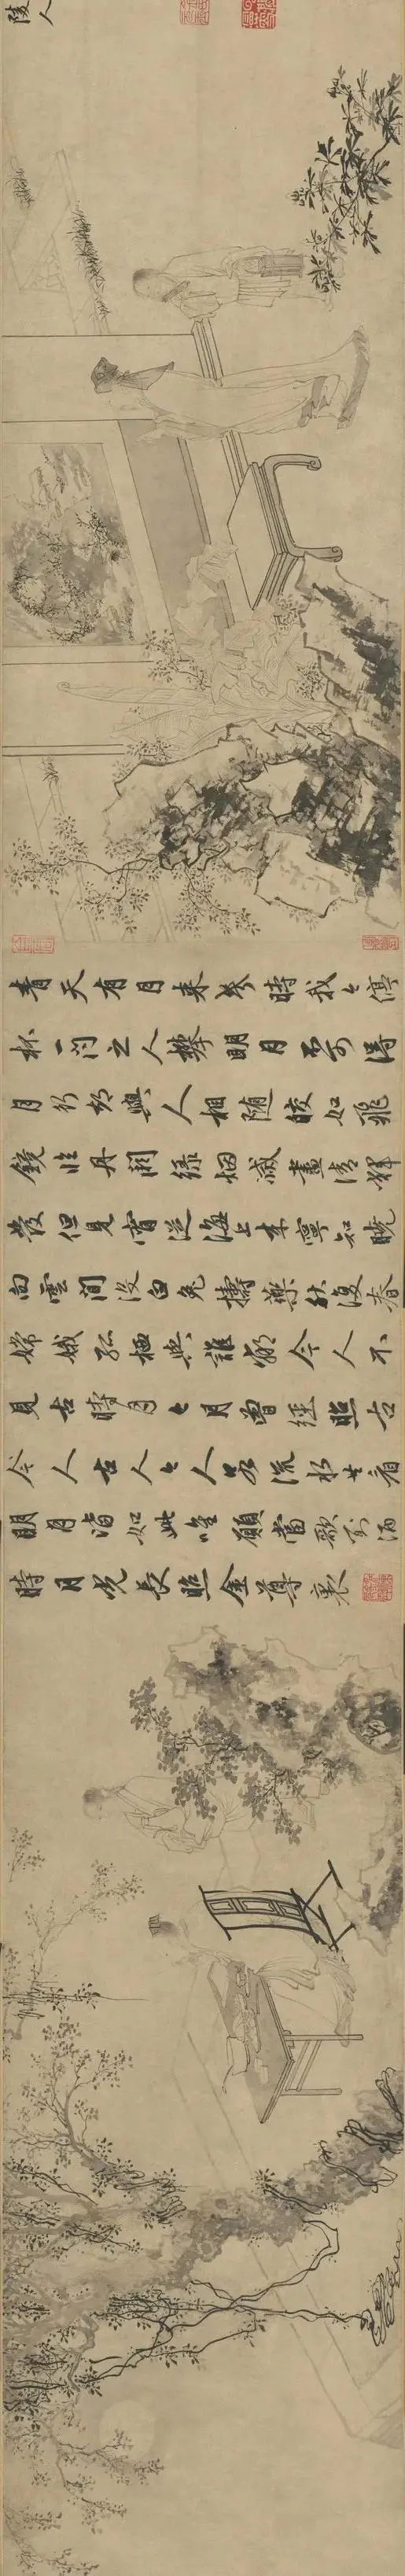 陵人
青天有月来幾時我今停
杯一问之人攀明月不可得
月行却與人相随皎如飛
鏡臨丹闕緑烟滅盡清輝
發但見宵從海上来寧知曉
向雲間没白兔擣藥秋復春
嫦娥孤棲與誰鄰今人不
見古時月今月曾經照古
人古人今人若流水共看
明月皆如此唯願當歌對酒
時月光長照金尊裏